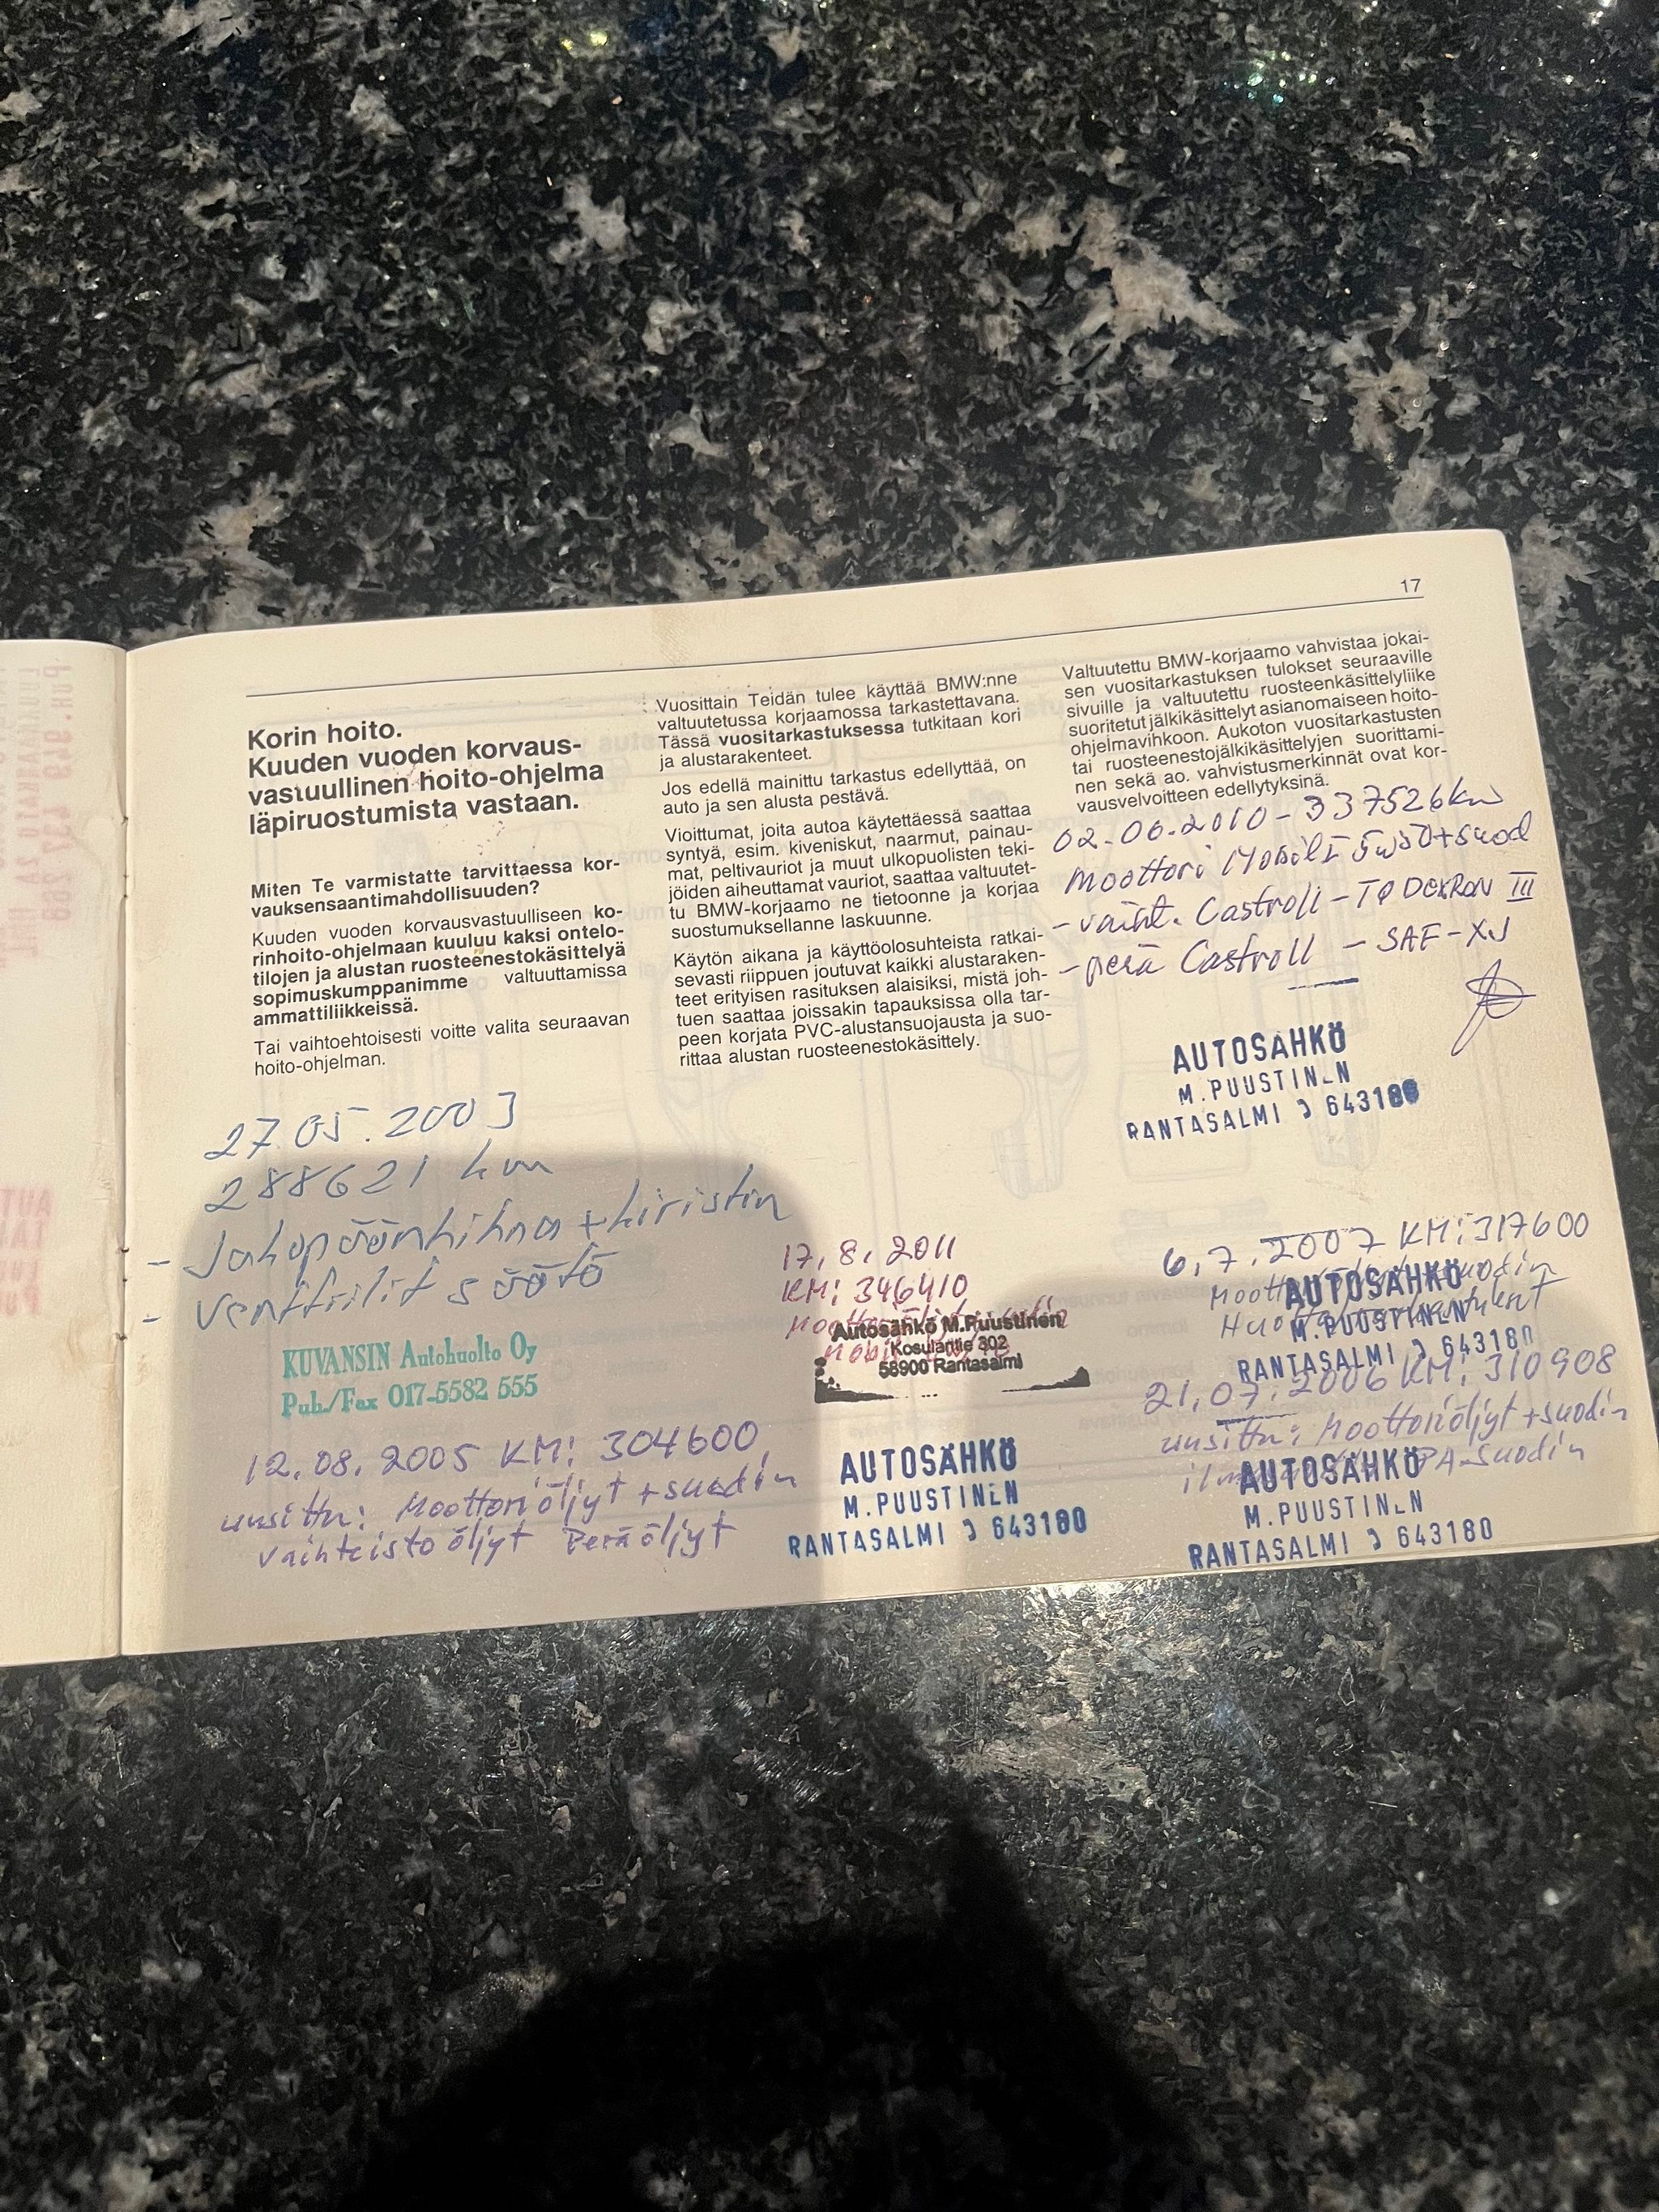 17
Korin hoito.
Kuuden vuoden korvaus-
vastuullinen hoito-ohjelma
läpiruostumista vastaan.
Miten Te varmistatte tarvittaessa kor-
vauksensaantimahdollisuuden?
Kuuden vuoden korvausvastuulliseen ko-
rinhoito-ohjelmaan kuuluu kaksi ontelo-
tilojen ja alustan ruosteenestokäsittelyä
sopimuskumppanimme valtuuttamissa
ammattiliikkeissä.
Tai vaihtoehtoisesti voitte valita seuraavan
hoito-ohjelman.
27.05.2003
288621 km
- Jakopäänhihna + kiristin
- Venttiilit säätö
KUVANSIN Autohuolto Oy
Puh./Fax 017-5582 555
12.08.2005 KM: 304600
uusittu: Moottoriöljyt + suodin
Vaihteistoöljyt Peräöljyt
Vuosittain Teidän tulee käyttää BMW:nne
valtuutetussa korjaamossa tarkastettavana.
Tässä vuositarkastuksessa tutkitaan kori
ja alustarakenteet.
Jos edellä mainittu tarkastus edellyttää, on
auto ja sen alusta pestävä.
Vioittumat, joita autoa käytettäessä saattaa
syntyä, esim. kiveniskut, naarmut, painau-
mat, peltivauriot ja muut ulkopuolisten teki-
jöiden aiheuttamat vauriot, saattaa valtuutet-
tu BMW-korjaamo ne tietoonne ja korjaa
suostumuksellanne laskuunne.
Käytön aikana ja käyttöolosuhteista ratkai-
sevasti riippuen joutuvat kaikki alustaraken-
teet erityisen rasituksen alaisiksi, mistä joh-
tuen saattaa joissakin tapauksissa olla tar-
peen korjata PVC-alustansuojausta ja suo-
rittaa alustan ruosteenestokäsittely.
17.8.2011
KM: 346410
Autosähkö M.Puustinen
Kosulantie 302
58900 Rantasalmi
AUTOSÄHKÖ
M.PUUSTINEN
RANTASALMI 643180
Valtuutettu BMW-korjaamo vahvistaa jokai-
sen vuositarkastuksen tulokset seuraaville
sivuille ja valtuutettu ruosteenkäsittelyliike
suoritetut jälkikäsittelyt asianomaiseen hoito-
ohjelmavihkoon. Aukoton vuositarkastusten
tai ruosteenestojälkikäsittelyjen suorittami-
nen sekä ao. vahvistusmerkinnät ovat kor-
vausvelvoitteen edellytyksinä.
02.06.2010 - 337526km
Moottori Mobil 1 5w50+suod
- vaiht. Castroll - TQ DEXRON III
- perä Castroll - SAF-XJ
AUTOSÄHKÖ
M.PUUSTINEN
RANTASALMI 643180
6.7.2007 KM: 317600
suodin
AUTOSÄHKÖ
M.PUUSTINEN
RANTASALMI 643180
21.07.2006 KM: 310908
uusittu: Moottoriöljyt + suodin
PA-suodin
AUTOSÄHKÖ
M.PUUSTINEN
RANTASALMI 643180